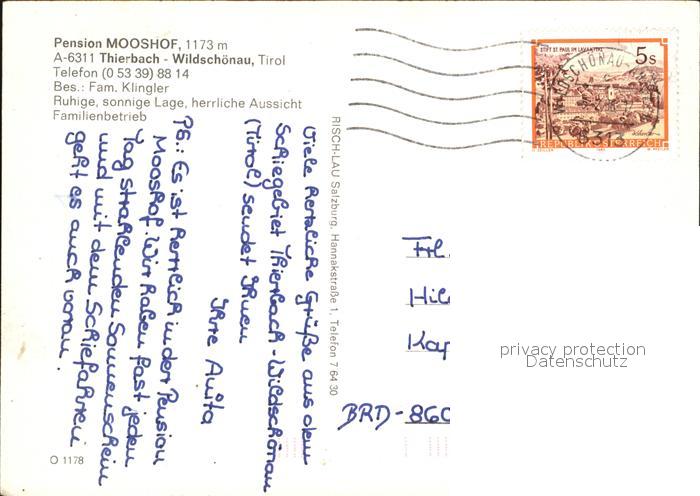 Pension MOOSHOF, 1173 m
A-6311 Thierbach - Wildschönau, Tirol
Telefon (0 53 39) 88 14
Bes.: Fam. Klingler
Ruhige, sonnige Lage, herrliche Aussicht
Familienbetrieb
Viele herzliche Grüße aus dem
Schiegebiet Thierbach - Wildschönau
(Tirol) sendet Ihnen
Ihre Anita
PS.: Es ist herrlich in der Pension
Mooshof. Wir haben fast jeden
Tag strahlenden Sonnenschein
und mit dem Schiefahren
geht es auch voran.
O 1178
RISCH-LAU Salzburg, Hannakstraße 1, Telefon 7 64 30
STIFT ST. PAUL IM LAVANTTAL
5s
REPUBLIK ÖSTERREICH
WILDSCHÖNAU
6313
Frl.
Hil
Kap
BRD - 860
privacy protection
Datenschutz